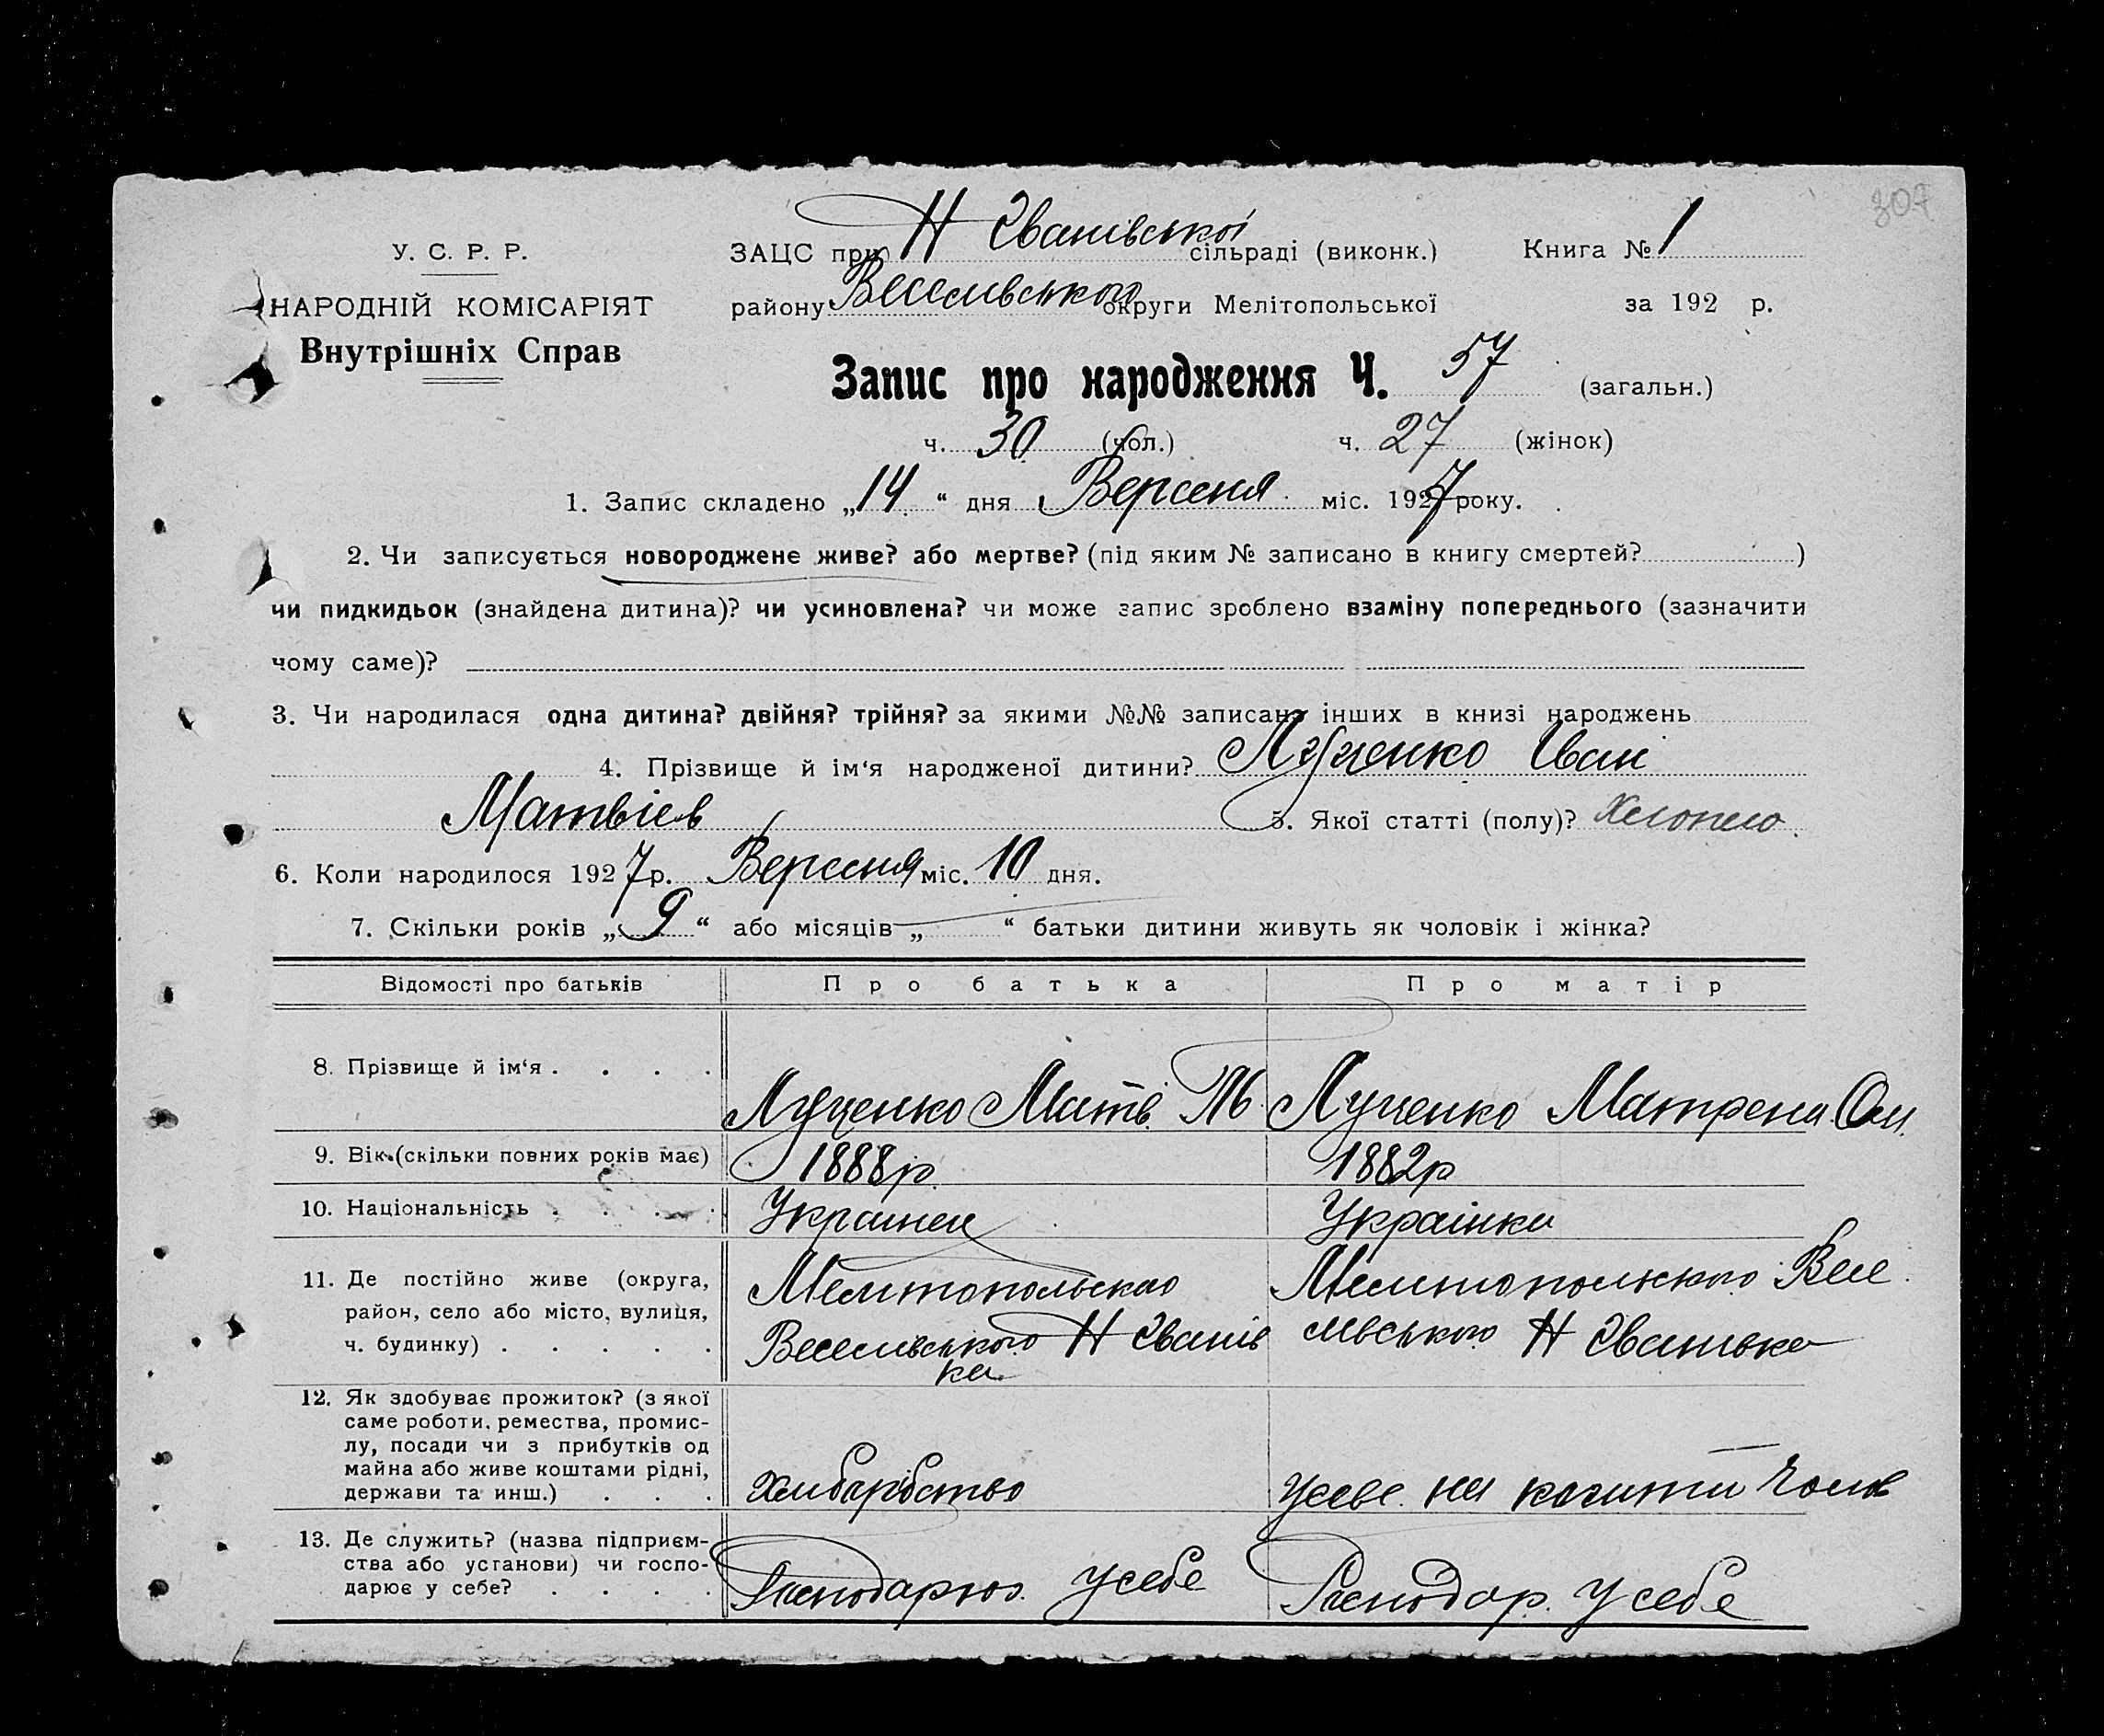 307
ЗАЦС при Н Іванівської сільраді (виконк.) Книга № 1
району Веселівського округи Мелітопольської за 192 р.
У. С. Р. Р.
НАРОДНІЙ КОМІСАРІЯТ
Внутрішніх Справ
Запис про народження Ч. 57 (загальн.)
ч. 30 (чол.) ч. 27 (жінок)
1. Запис складено „14“ дня Вересня міс. 1927 року.
2. Чи записується новороджене живе? або мертве? (під яким № записано в книгу смертей? )
чи пидкидьок (знайдена дитина)? чи усиновлена? чи може запис зроблено взаміну попереднього (зазначити
чому саме)?
3. Чи народилася одна дитина? двійня? трійня? за якими №№ записано інших в книзі народжень
4. Прізвище й ім'я народженої дитини? Луценко Іван
Матвієв 5. Якої статті (полу)?
6. Коли народилося 1927 р. Вересня міс. 10 дня.
7. Скільки років „9“ або місяців „ “ батьки дитини живуть як чоловік і жінка?
Відомості про батьків Про батька Про матір
8. Прізвище й ім'я . . . . Луценко Матв. Луценко Матрена
9. Вік (скільки повних років має) 1888р. 1882р
10. Національність . . . . Українец Українка
11. Де постійно живе (округа,
район, село або місто, вулиця,
ч. будинку) . . . . .
Мелітопольскао
Веселівського Н Іванів
ка
Мелітопольского Весе
лівського Н Іванівка
12. Як здобуває прожиток? (з якої
саме роботи, ремества, промис-
лу, посади чи з прибутків од
майна або живе коштами рідні,
держави та инш.) . . .
Хлібарбство
на кошти Чолов
13. Де служить? (назва підприєм-
ства або установи) чи госпо-
дарює у себе? . . . .
Господарює усебе
Господар. у себе